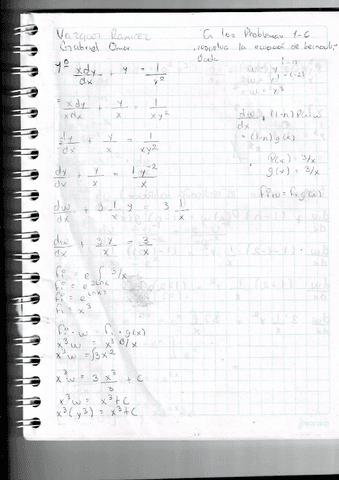 Vazquez Ramirez
Gabriel Omar
En los Problemas 1-6
resuelva la ecuación de bernoulli
dada
1º xdy/dx + y = 1/y²
= xdy/xdx + y/x = 1/xy²
dy/dx + y/x = 1/xy²
dy/dx + y/x = 1y⁻²/x
dw/dx + 3 1/x y = 3 1/x
dw/dx + 3y/x = 3/x
fi = e ∫ 3/x
fi = e^3Lnx
fi = e^Lnx³
fi = x³
fi · w = fi · g(x)
x³w = x³ 3/x
x³w = ∫3x²
x³w = 3 x³/3 + C
x³w = x³ + C
x³(y³) = x³ + C
w = y^1-n
w = y^1-(-2)
w = y³
dw/dx + (1-n) P(x) w
= (1-n) g(x)
P(x) = 3/x
g(x) = 3/x